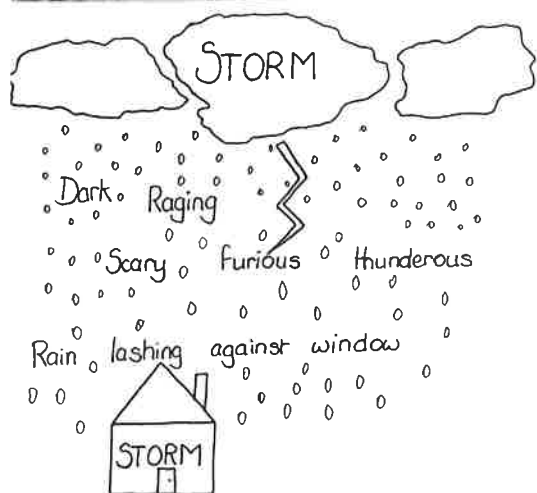 STORM
Dark Raging
Scary furious thunderous
Rain lashing against window
STORM